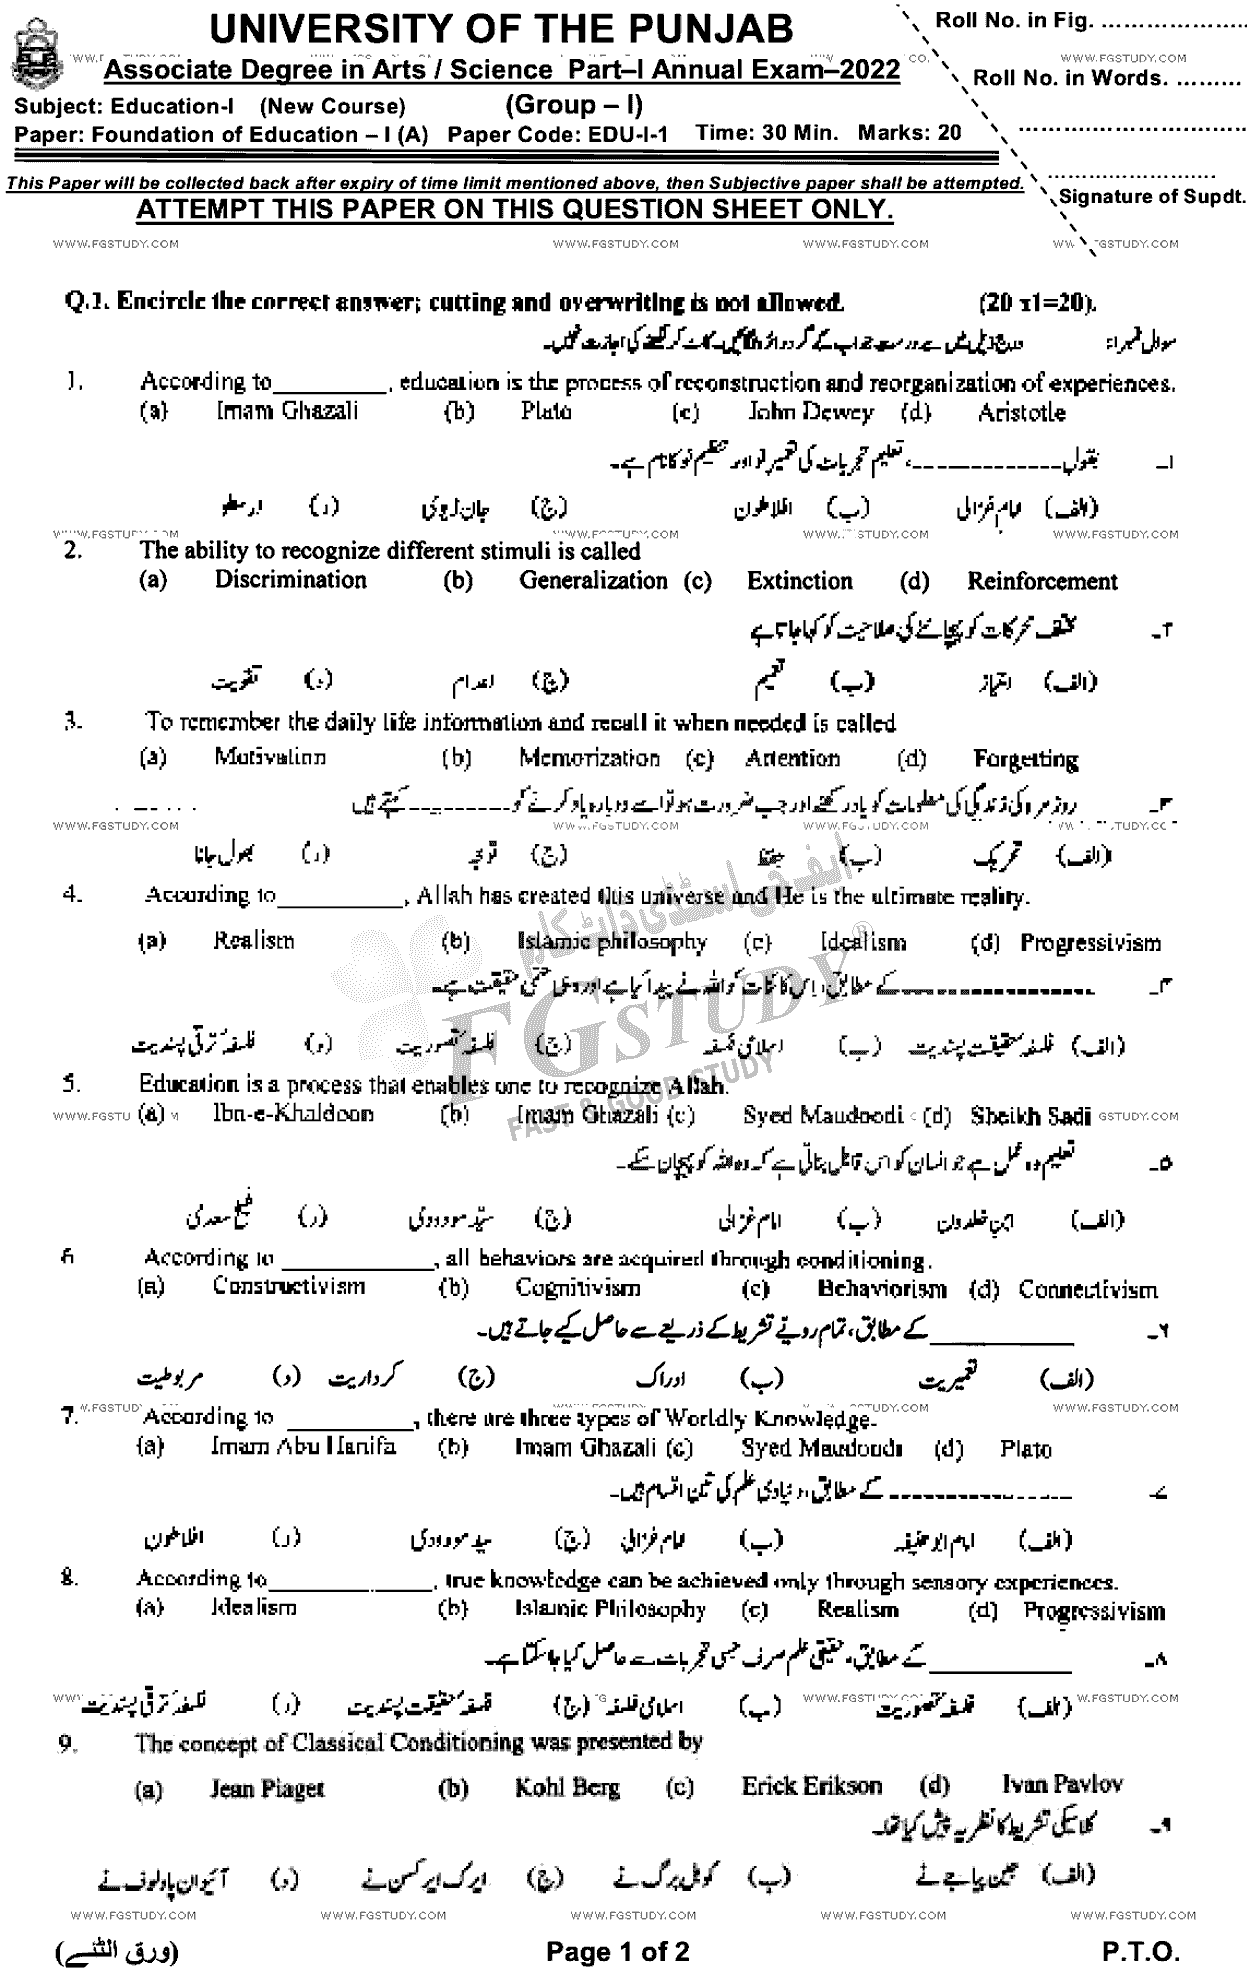 UNIVERSITY OF THE PUNJAB
Roll No. in Fig. ....................
Associate Degree in Arts / Science Part–I Annual Exam–2022
Roll No. in Words. .........
Subject: Education-I (New Course) (Group – I)
Paper: Foundation of Education – I (A) Paper Code: EDU-I-1 Time: 30 Min. Marks: 20
This Paper will be collected back after expiry of time limit mentioned above, then Subjective paper shall be attempted.
Signature of Supdt.
ATTEMPT THIS PAPER ON THIS QUESTION SHEET ONLY.
WWW.FGSTUDY.COM WWW.FGSTUDY.COM WWW.FGSTUDY.COM
Q.1. Encircle the correct answer; cutting and overwriting is not allowed. (20 x1=20).
1. According to_________, education is the process of reconstruction and reorganization of experiences.
(a) Imam Ghazali (b) Plato (c) John Dewey (d) Aristotle
۱ـ بقول ـــــــــــــ، تعلیم تجربات کی تعمیر نو اور تنظیم نو کا نام ہے۔
(الف) امام غزالی (ب) افلاطون (ج) جان ڈیوی (د) ارسطو
2. The ability to recognize different stimuli is called
(a) Discrimination (b) Generalization (c) Extinction (d) Reinforcement
۲ـ مختلف محرکات کو پہچاننے کی صلاحیت کو کہا جاتا ہے
(الف) امتیاز (ب) تعمیم (ج) اعدام (د) تقویت
3. To remember the daily life information and recall it when needed is called
(a) Motivation (b) Memorization (c) Attention (d) Forgetting
۳ـ روزمرہ کی زندگی کی معلومات کو یاد رکھنے اور جب ضرورت ہو تو اسے دوبارہ یاد کرنے کو ـــــــــ کہتے ہیں
(الف) تحریک (ب) حفظ (ج) توجہ (د) بھول جانا
4. According to__________, Allah has created this universe and He is the ultimate reality.
(a) Realism (b) Islamic philosophy (c) Idealism (d) Progressivism
۴ـ ــــــــــــــ کے مطابق، اس کائنات کو اللہ نے پیدا کیا ہے اور وہی حتمی حقیقت ہے۔
(الف) فلسفۂ حقیقت پسندیت (ب) اسلامی فلسفہ (ج) فلسفۂ تصوریت (د) فلسفۂ ترقی پسندیت
5. Education is a process that enables one to recognize Allah.
(a) Ibn-e-Khaldoon (b) Imam Ghazali (c) Syed Maudoodi (d) Sheikh Sadi
۵ـ تعلیم وہ عمل ہے جو انسان کو اس قابل بناتی ہے کہ وہ اللہ کو پہچان سکے۔
(الف) ابن خلدون (ب) امام غزالی (ج) سیّد مودودی (د) شیخ سعدی
6 According to ____________, all behaviors are acquired through conditioning.
(a) Constructivism (b) Cognitivism (c) Behaviorism (d) Connectivism
۶ـ ____________ کے مطابق، تمام رویے تشریط کے ذریعے سے حاصل کیے جاتے ہیں۔
(الف) تعمیریت (ب) ادراک (ج) کرداریت (د) مربوطیت
7. According to __________, there are three types of Worldly Knowledge.
(a) Imam Abu Hanifa (b) Imam Ghazali (c) Syed Maudoodi (d) Plato
۷ـ ــــــــــــــ کے مطابق، دنیاوی علم کی تین اقسام ہیں۔
(الف) امام ابو حنیفہ (ب) امام غزالی (ج) سید مودودی (د) افلاطون
8. According to_____________, true knowledge can be achieved only through sensory experiences.
(a) Idealism (b) Islamic Philosophy (c) Realism (d) Progressivism
۸ـ ____________ کے مطابق، حقیقی علم صرف حسی تجربات سے حاصل کیا جا سکتا ہے۔
(الف) فلسفۂ تصوریت (ب) اسلامی فلسفہ (ج) فلسفۂ حقیقت پسندیت (د) فلسفۂ ترقی پسندیت
9. The concept of Classical Conditioning was presented by
(a) Jean Piaget (b) Kohl Berg (c) Erick Erikson (d) Ivan Pavlov
۹ـ کلاسیکی تشریط کا نظریہ پیش کیا تھا۔
(الف) جین پیاجے نے (ب) کوہل برگ نے (ج) ایرک ایرکسن نے (د) آئیوان پاولوف نے
WWW.FGSTUDY.COM WWW.FGSTUDY.COM WWW.FGSTUDY.COM WWW.FGSTUDY.COM WWW.FGSTUDY.COM
(ورق الٹئے) Page 1 of 2 P.T.O.